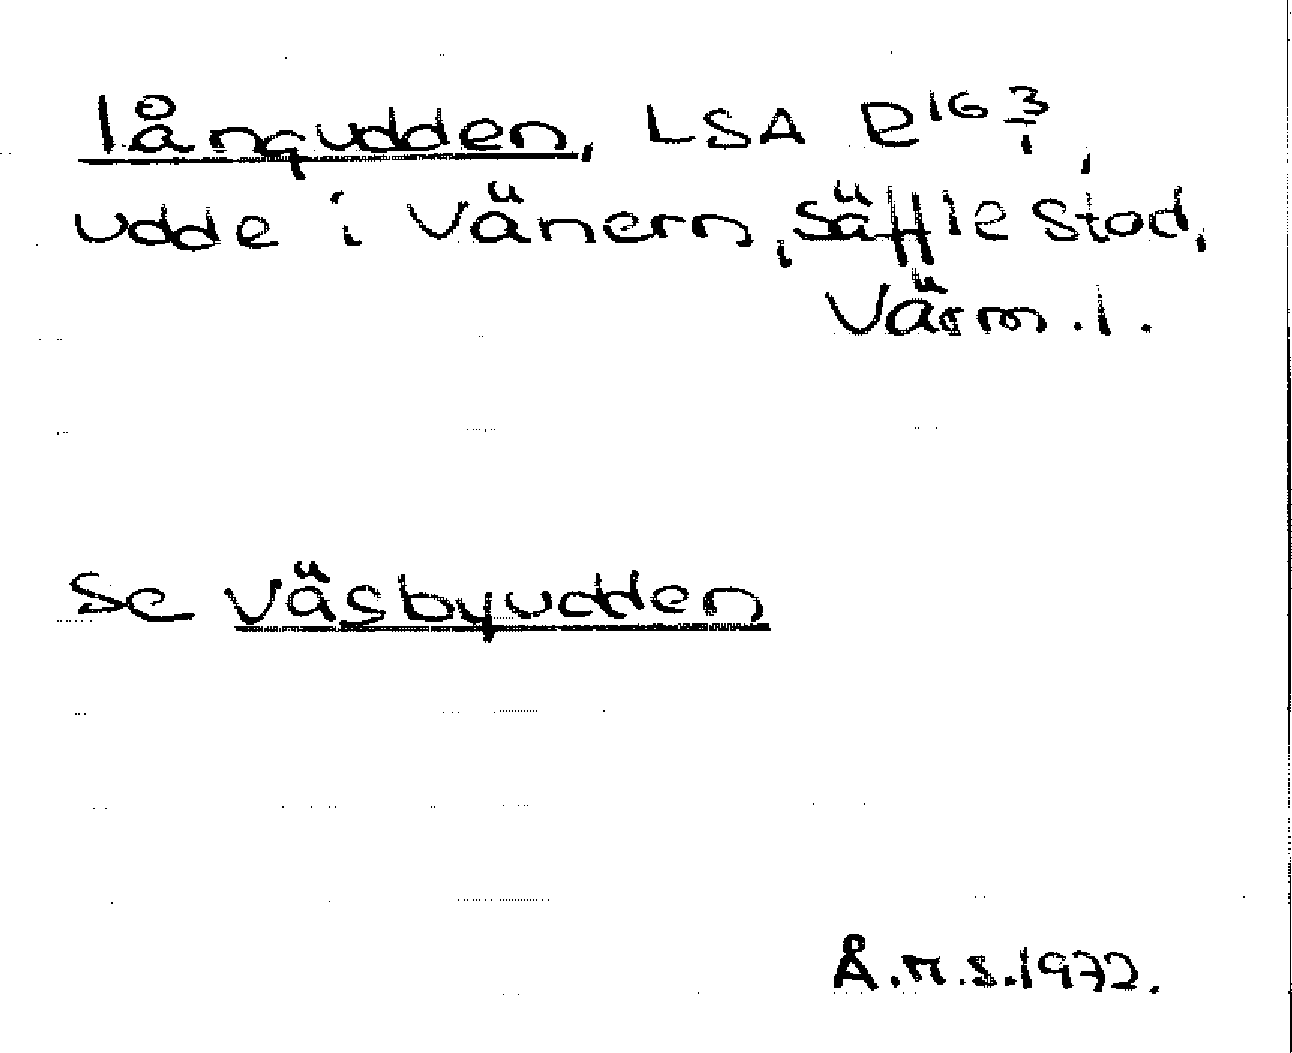 långudden, LSA R16 3/1,
udde i Vänern, Säffle stad,
Värm. l.
Se Väsbyudden
Å.M.S. 1972.